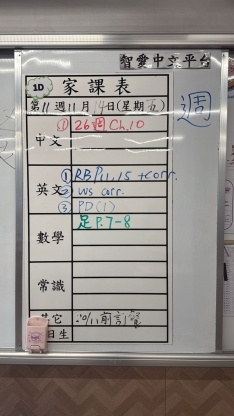 智愛中文平台
1D
家課表
第11週11月14日(星期五)
週
中文
① 26週 Ch.10
英文
① RB P.11,15 +corr.
② WS corr.
③ PD(1)
數學
足 P.7-8
常識
其它
20/11前
日生